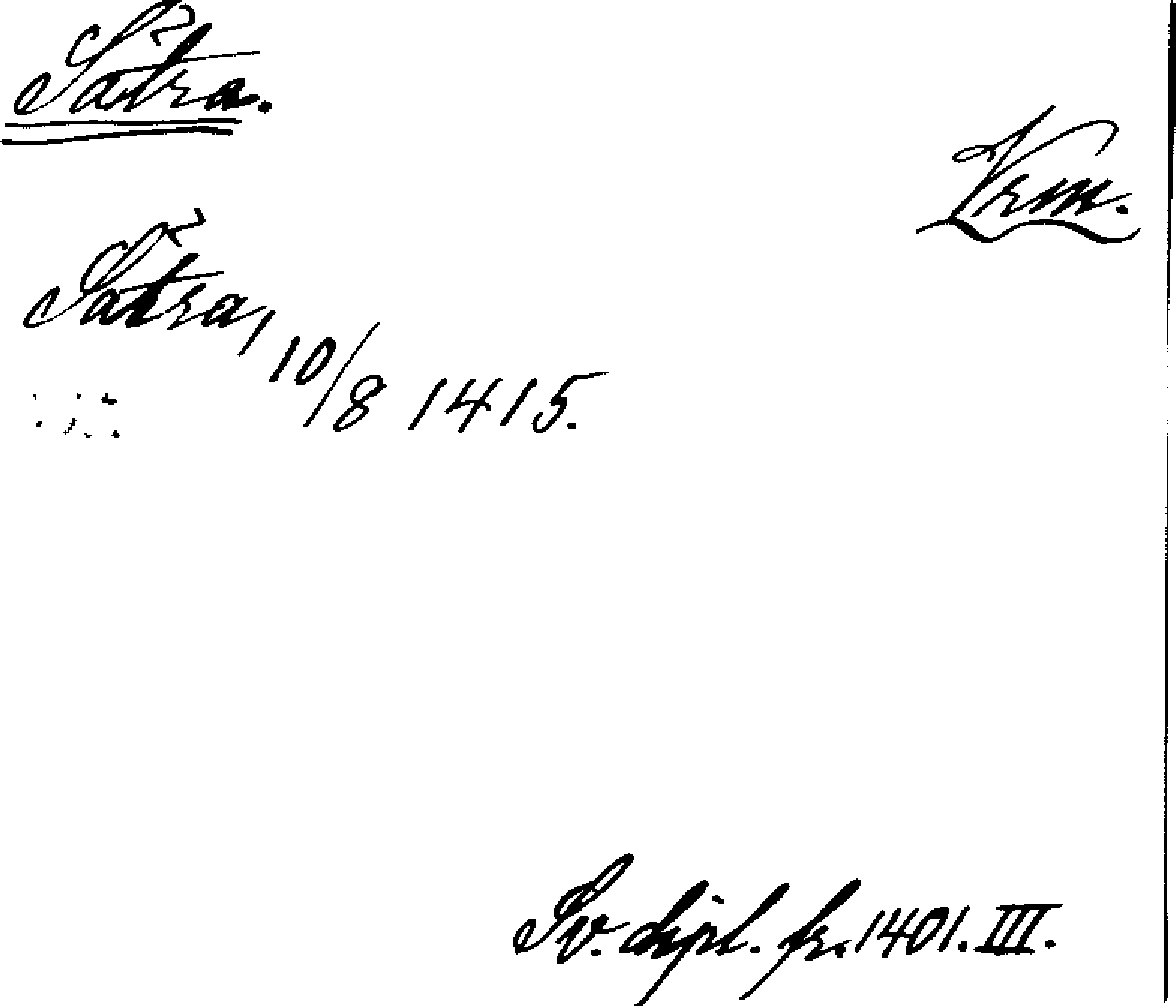 Sätra.
Vrm.
Sätra, 10/8 1415.
Sv. dipl. fr. 1401. III.